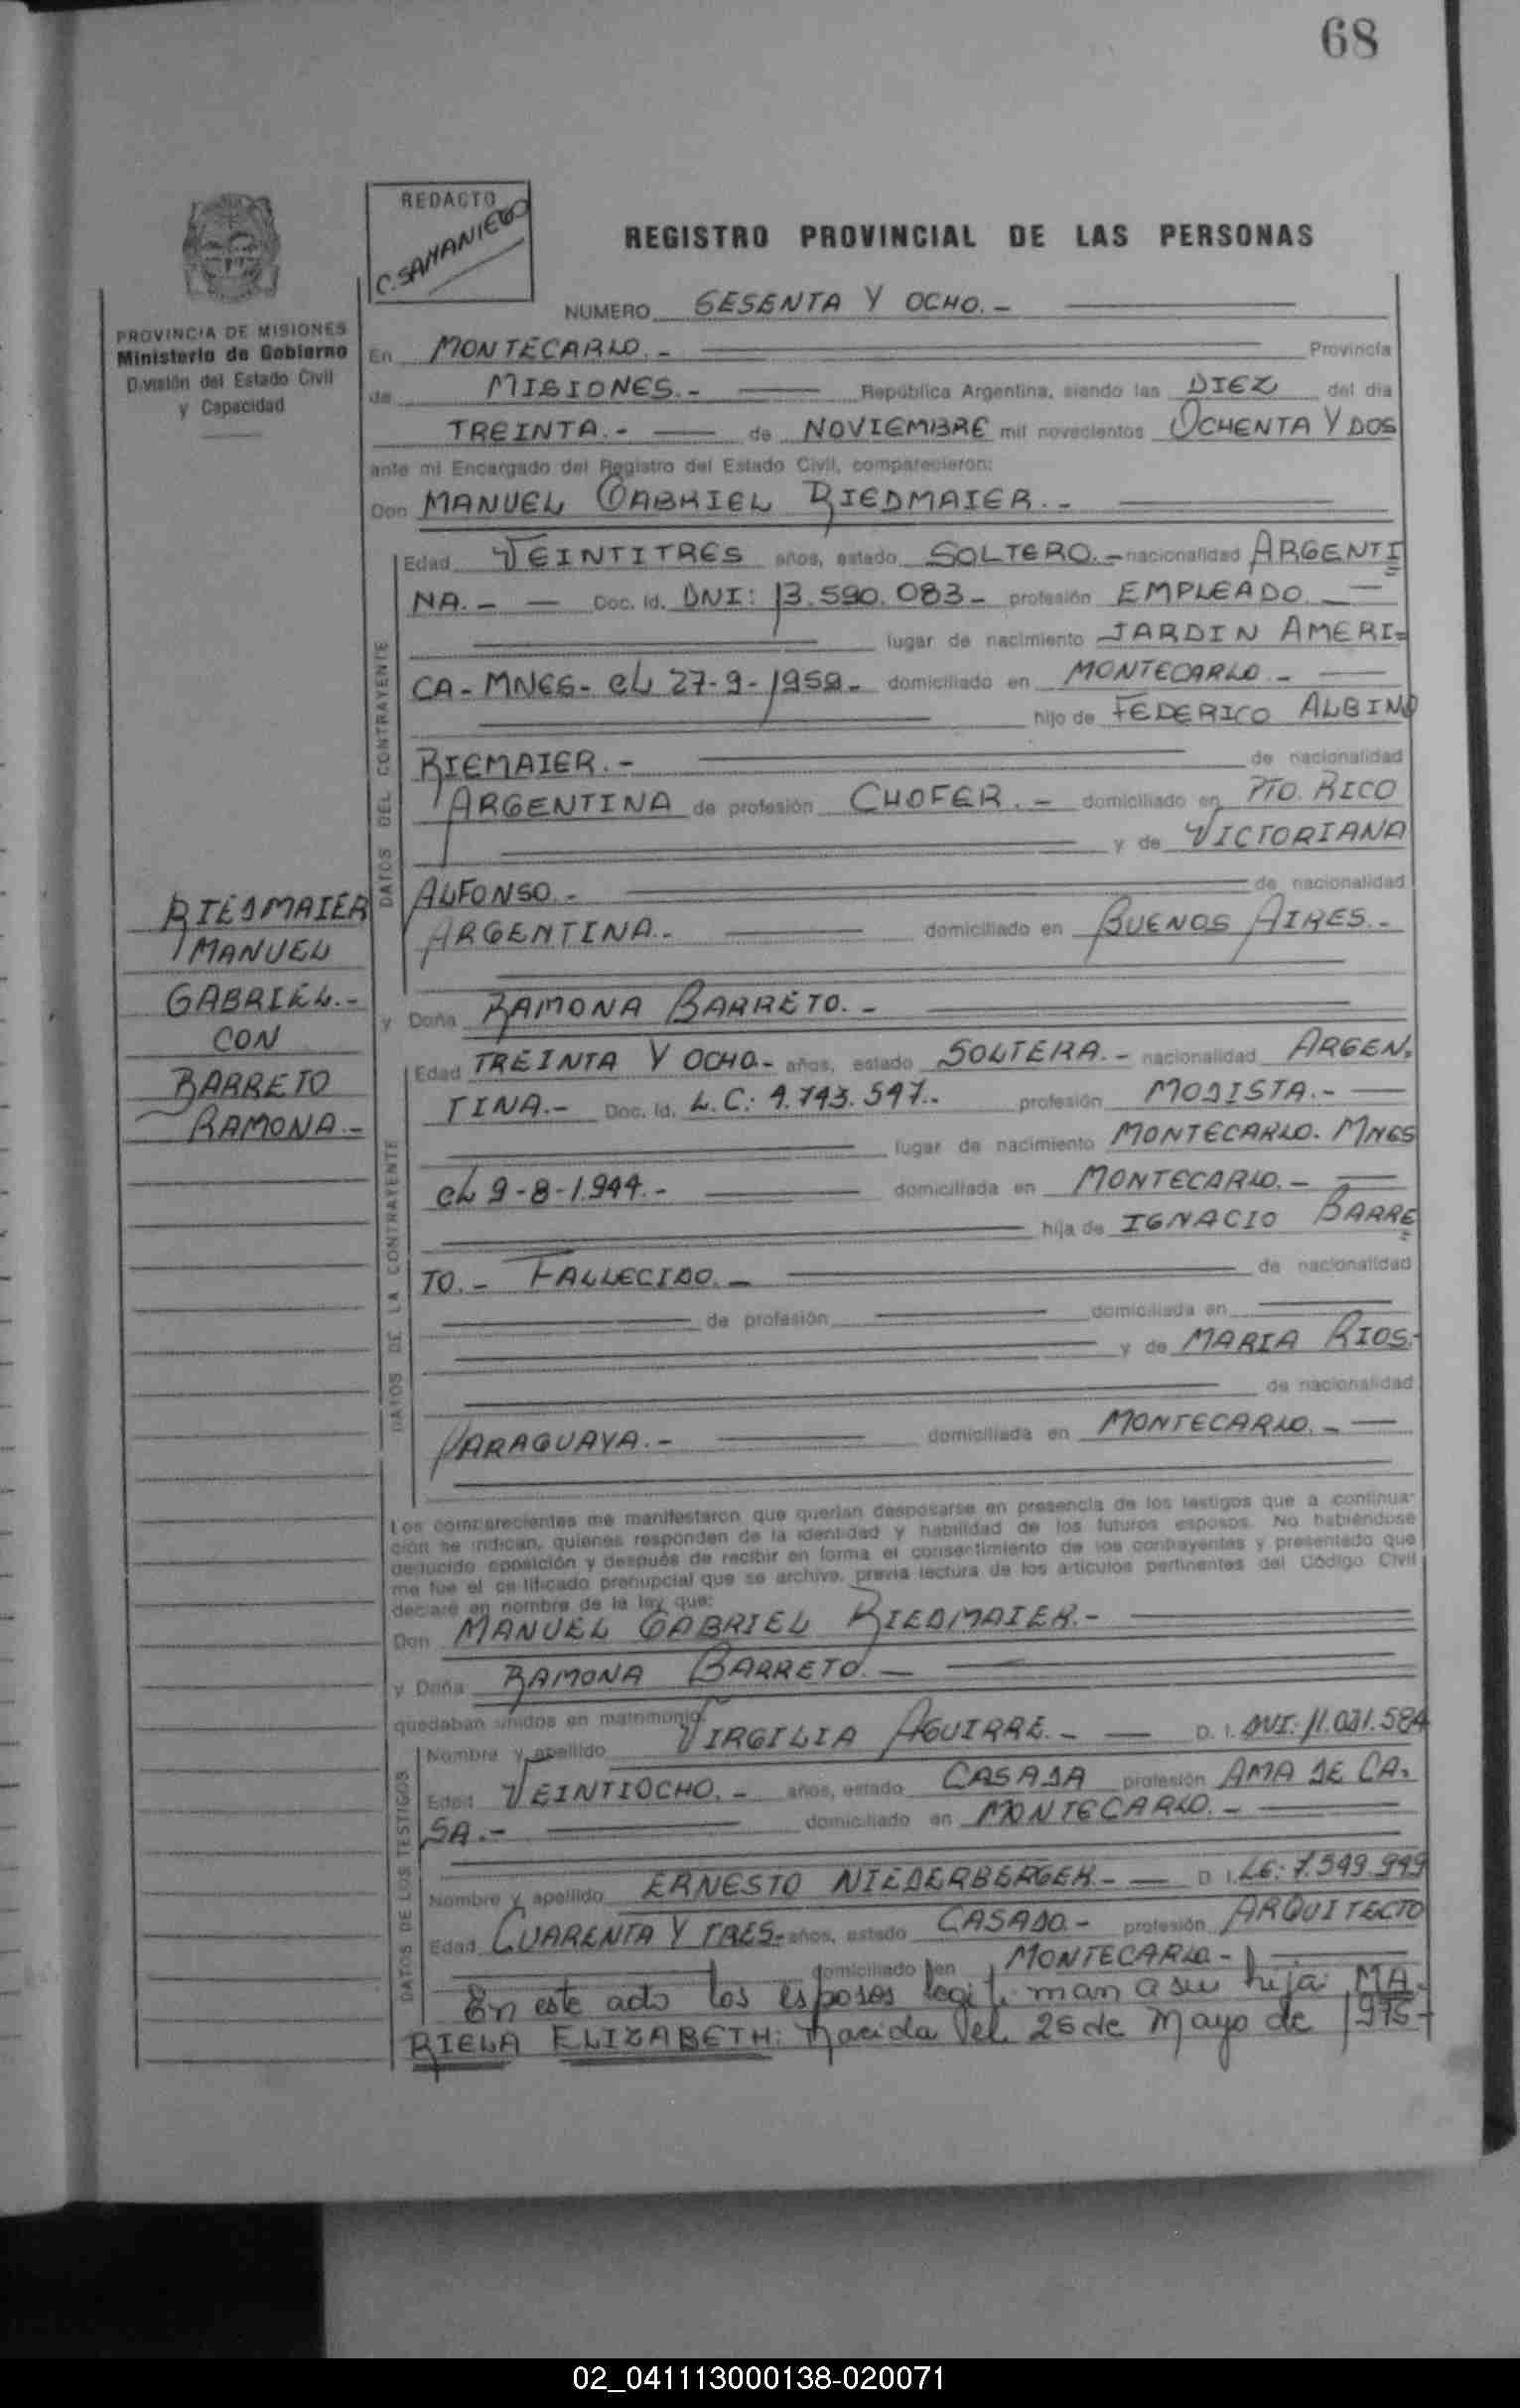 68
REDACTO
C. SAMANIEGO
REGISTRO PROVINCIAL DE LAS PERSONAS
PROVINCIA DE MISIONES
Ministerio de Gobierno
División del Estado Civil
y Capacidad
NUMERO SESENTA Y OCHO.-
En MONTECARLO.- Provincia
de MISIONES.- República Argentina, siendo las DIEZ del día
TREINTA.- de NOVIEMBRE mil novecientos OCHENTA Y DOS
ante mi Encargado del Registro del Estado Civil, comparecieron:
Don MANUEL GABRIEL RIEDMAIER.-
DATOS DEL CONTRAYENTE
Edad VEINTITRES años, estado SOLTERO.- nacionalidad ARGENTI
NA.- - Doc. Id. DNI: 13.590.083- profesión EMPLEADO
lugar de nacimiento JARDIN AMERI=
CA- MNES- EL 27-9-1959- domiciliado en MONTECARLO.-
hijo de FEDERICO ALBINO
RIEMAIER.- de nacionalidad
ARGENTINA de profesión CHOFER.- domiciliado en PTO. RICO
y de VICTORIANA
ALFONSO.- de nacionalidad
ARGENTINA.- domiciliado en BUENOS AIRES.-
RIEDMAIER
MANUEL
GABRIEL.-
CON
BARRETO
RAMONA.-
y Doña RAMONA BARRETO.-
DATOS DE LA CONTRAYENTE
Edad TREINTA Y OCHO- años, estado SOLTERA.- nacionalidad ARGEN.
TINA.- Doc. Id. L.C.: 4.743.547.- profesión MODISTA.-
lugar de nacimiento MONTECARLO. MNES
EL 9-8-1.944.- domiciliada en MONTECARLO.-
hija de IGNACIO BARRE
TO.- FALLECIDO.- de nacionalidad
de profesión domiciliada en
y de MARIA RIOS.-
de nacionalidad
PARAGUAYA.- domiciliada en MONTECARLO.-
Los comparecientes me manifestaron que querían desposarse en presencia de los testigos que a continua-
ción se indican, quienes responden de la identidad y habilidad de los futuros esposos. No habiéndose
deducido oposición y después de recibir en forma el consentimiento de los contrayentes y presentado que
me fue el certificado prenupcial que se archiva, previa lectura de los artículos pertinentes del Código Civil
declaré en nombre de la ley que:
Don MANUEL GABRIEL RIEDMAIER.-
y Doña RAMONA BARRETO.-
quedaban unidos en matrimonio.
DATOS DE LOS TESTIGOS
Nombre y apellido VIRGILIA AGUIRRE.- D. I. DNI: 11.031.584
Edad VEINTIOCHO.- años, estado CASADA profesión AMA DE CA.
SA.- domiciliado en MONTECARLO.-
Nombre y apellido ERNESTO NIEDERBERGER.- D. I. LE: 7.549.949
Edad CUARENTA Y TRES- años, estado CASADO.- profesión ARQUITECTO
domiciliado en MONTECARLO-
En este acto los esposos legitiman a su hija: MA-
RIELA ELIZABETH: nacida el 26 de Mayo de 1975-
02_041113000138-020071